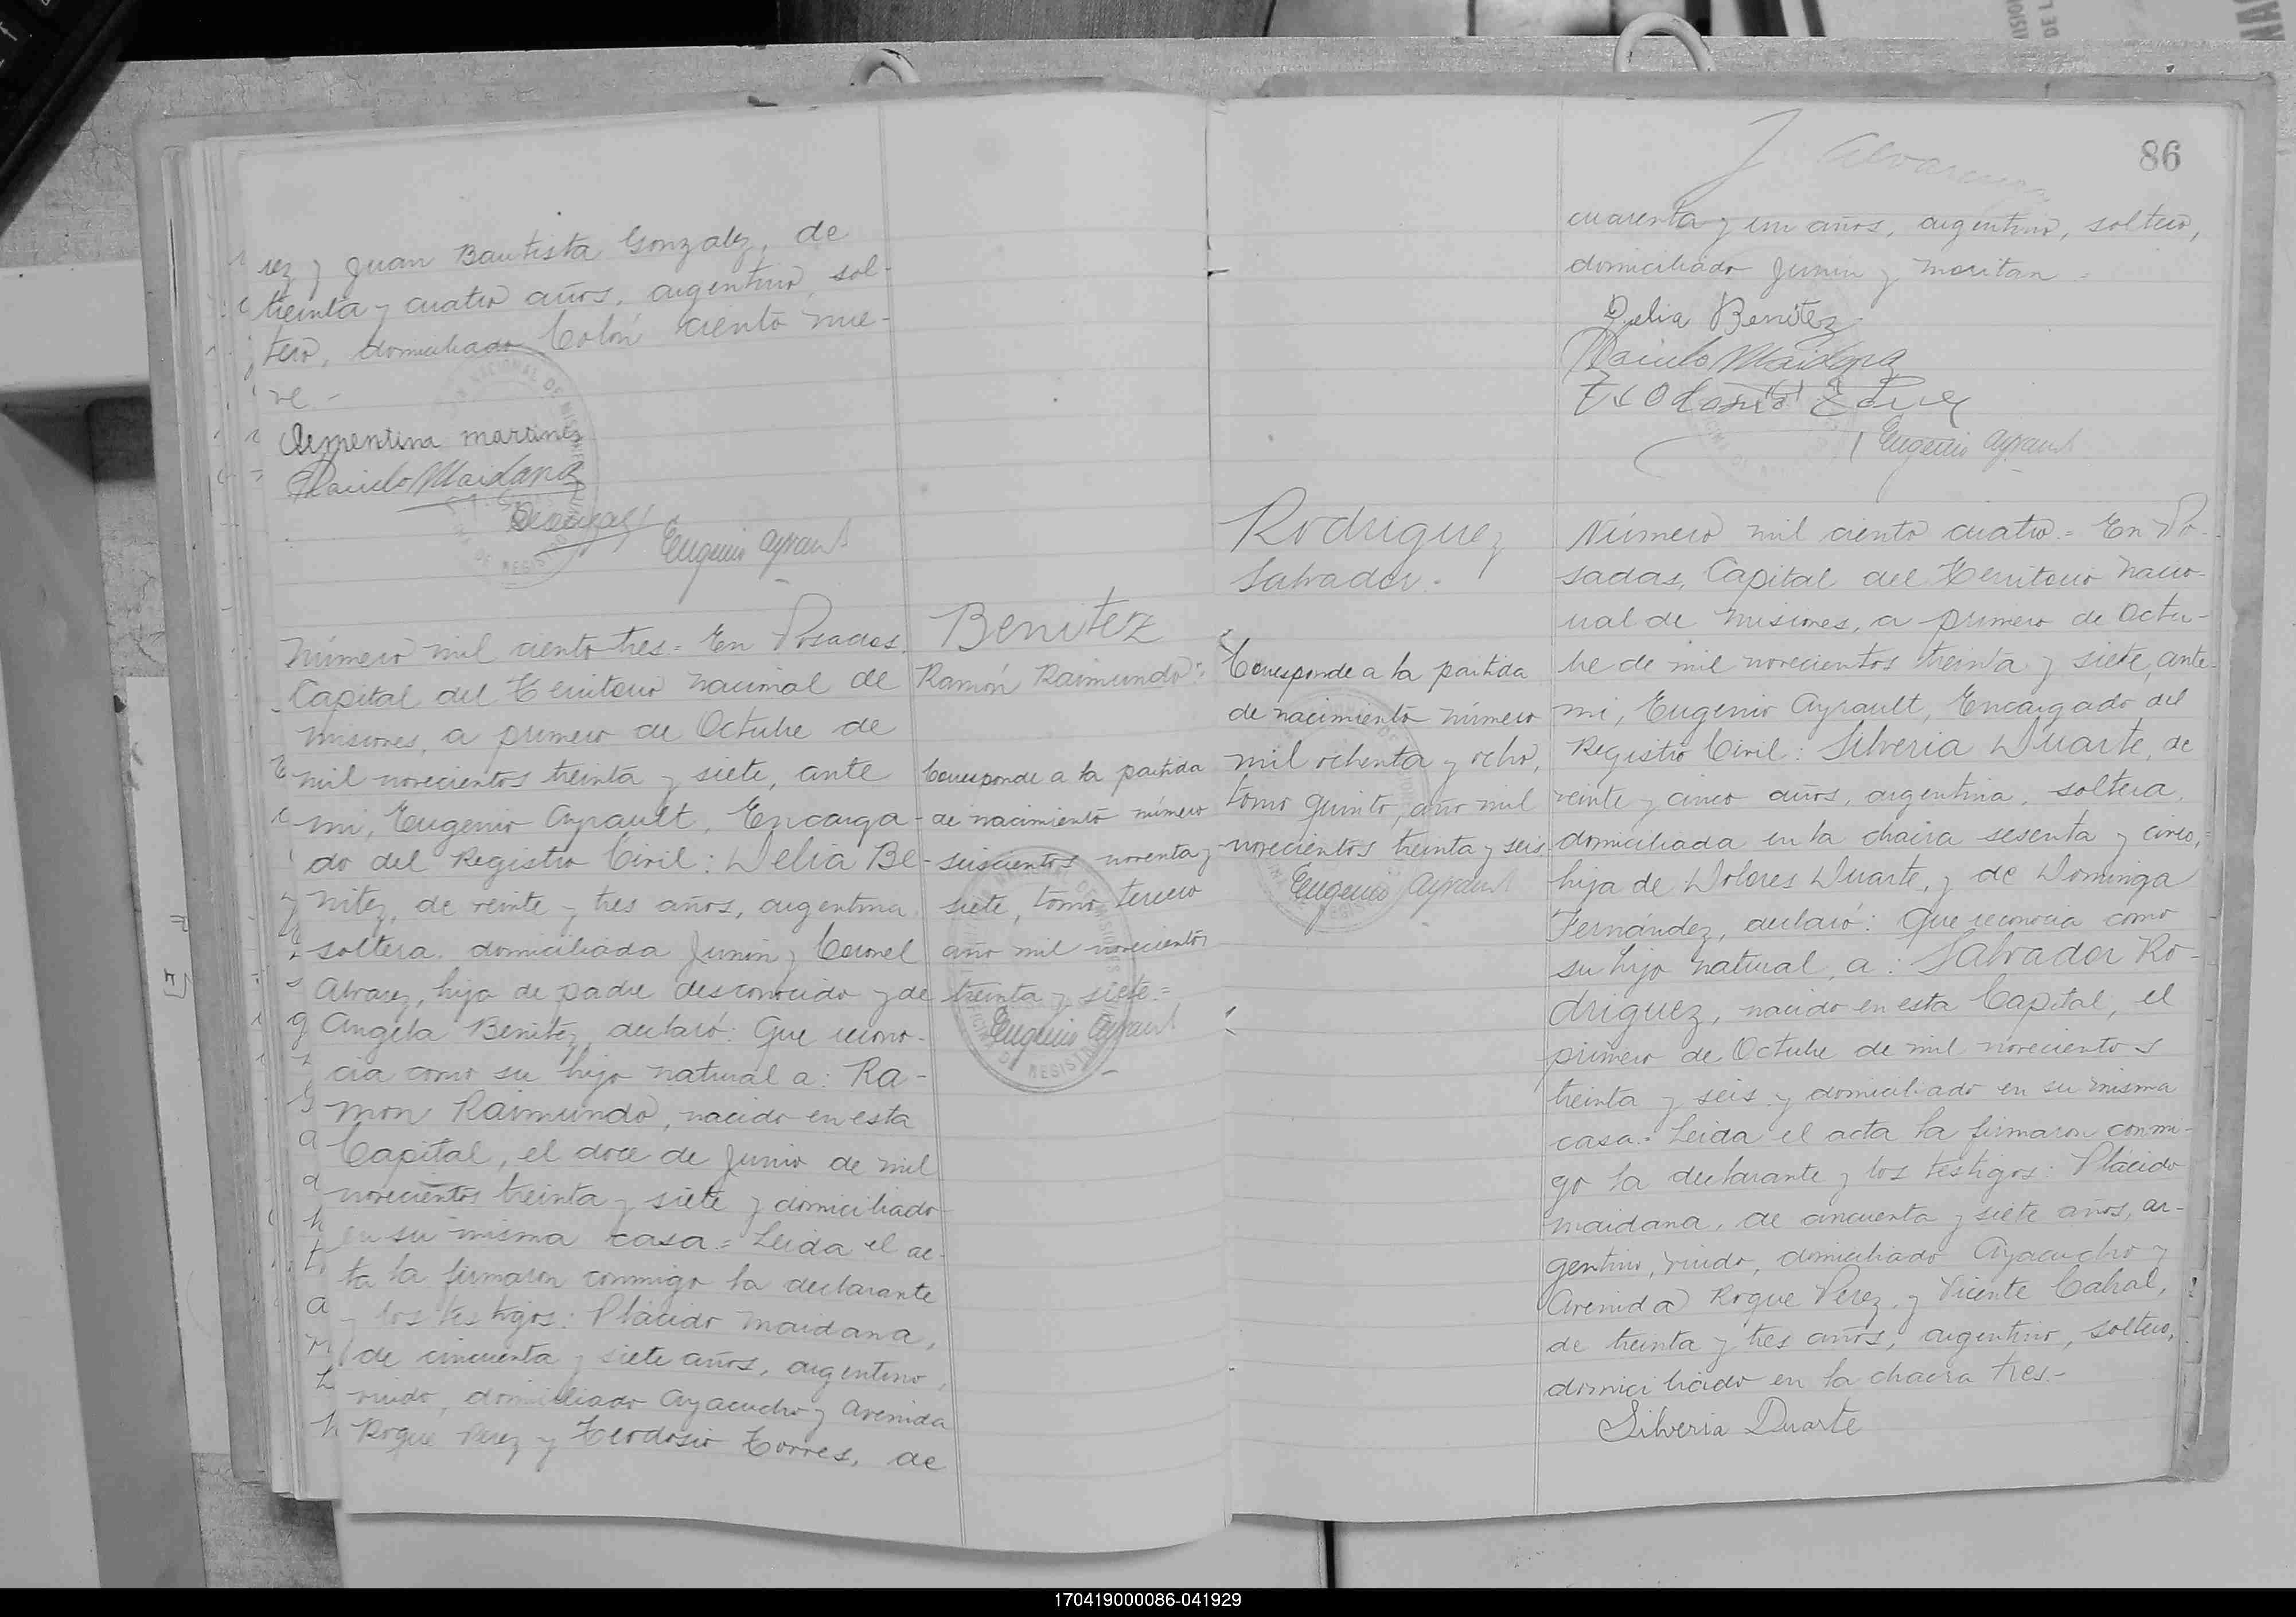 rez y Juan Bautista Gonzalez, de
treinta y cuatro años, argentino, sol-
tero, domiciliado Colón ciento nue-
ve.-
Clementina martinez
Placido Maidana
Eugenio Ayrault
Número mil ciento tres = En Posadas,
Capital del Territorio nacional de
Misiones, a primero de Octubre de
mil novecientos treinta y siete, ante
mi, Eugenio Ayrault, Encarga-
do del Registro Civil: Delia Be-
nitez, de veinte y tres años, argentina,
soltera, domiciliada Junin y Coronel
Alvarez, hija de padre desconocido y de
Angela Benitez, declaró: Que recono-
cia como su hijo natural a: Ra-
mon Raimundo, nacido en esta
Capital, el doce de Junio de mil
novecientos treinta y siete y domiciliado
en su misma casa.= Leida el ac-
ta la firmaron conmigo la declarante
y los testigos: Plácido Maidana,
de cincuenta y siete años, argentino,
viudo, domiciliado Ayacucho y Avenida
Roque Perez y Teodosio Torres, de
Benitez
Ramón Raimundo:
Corresponde a la partida
de nacimiento número
seiscientos noventa y
siete, tomo tercero
año mil novecientos
treinta y siete.=
Eugenio Ayrault
86
cuarenta y un años, argentino, soltero,
domiciliado Junin y
Delia Benitez
Placido Maidana
Eugenio Ayrault
Rodriguez
Salvador.
Corresponde a la partida
de nacimiento número
mil ochenta y ocho,
tomo quinto, año mil
novecientos treinta y seis
Eugenio Ayrault
Número mil ciento cuatro.= En Po-
sadas, Capital del Territorio Nacio-
nal de Misiones, a primero de Octu-
bre de mil novecientos treinta y siete, ante
mi, Eugenio Ayrault, Encargado del
Registro Civil: Silveria Duarte, de
veinte y cinco años, argentina, soltera,
domiciliada en la chacra sesenta y cinco,
hija de Dolores Duarte, y de Dominga
Fernández, declaró: Que reconocia como
su hijo natural a: Salvador Ro-
driguez, nacido en esta Capital, el
primero de Octubre de mil novecientos
treinta y seis y domiciliado en su misma
casa.- Leida el acta la firmaron conmi-
go la declarante y los testigos: Plácido
Maidana, de cincuenta y siete años, ar-
gentino, viudo, domiciliado Ayacucho y
Avenida Roque Perez, y Vicente Cabral,
de treinta y tres años, argentino, soltero,
domiciliado en la chacra tres.-
Silveria Duarte
170419000086-041929